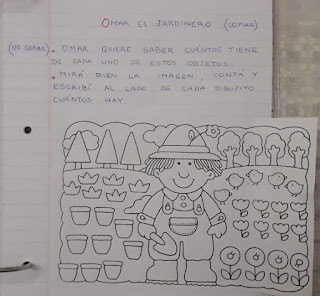 OMAR EL JARDINERO (COPIAR)
(NO COPIAR). OMAR QUIERE SABER CUÁNTOS TIENE
DE CADA UNO DE ESTOS OBJETOS.
. MIRÁ BIEN LA IMAGEN, CONTÁ Y
ESCRIBÍ AL LADO DE CADA DIBUJITO
CUÁNTOS HAY.